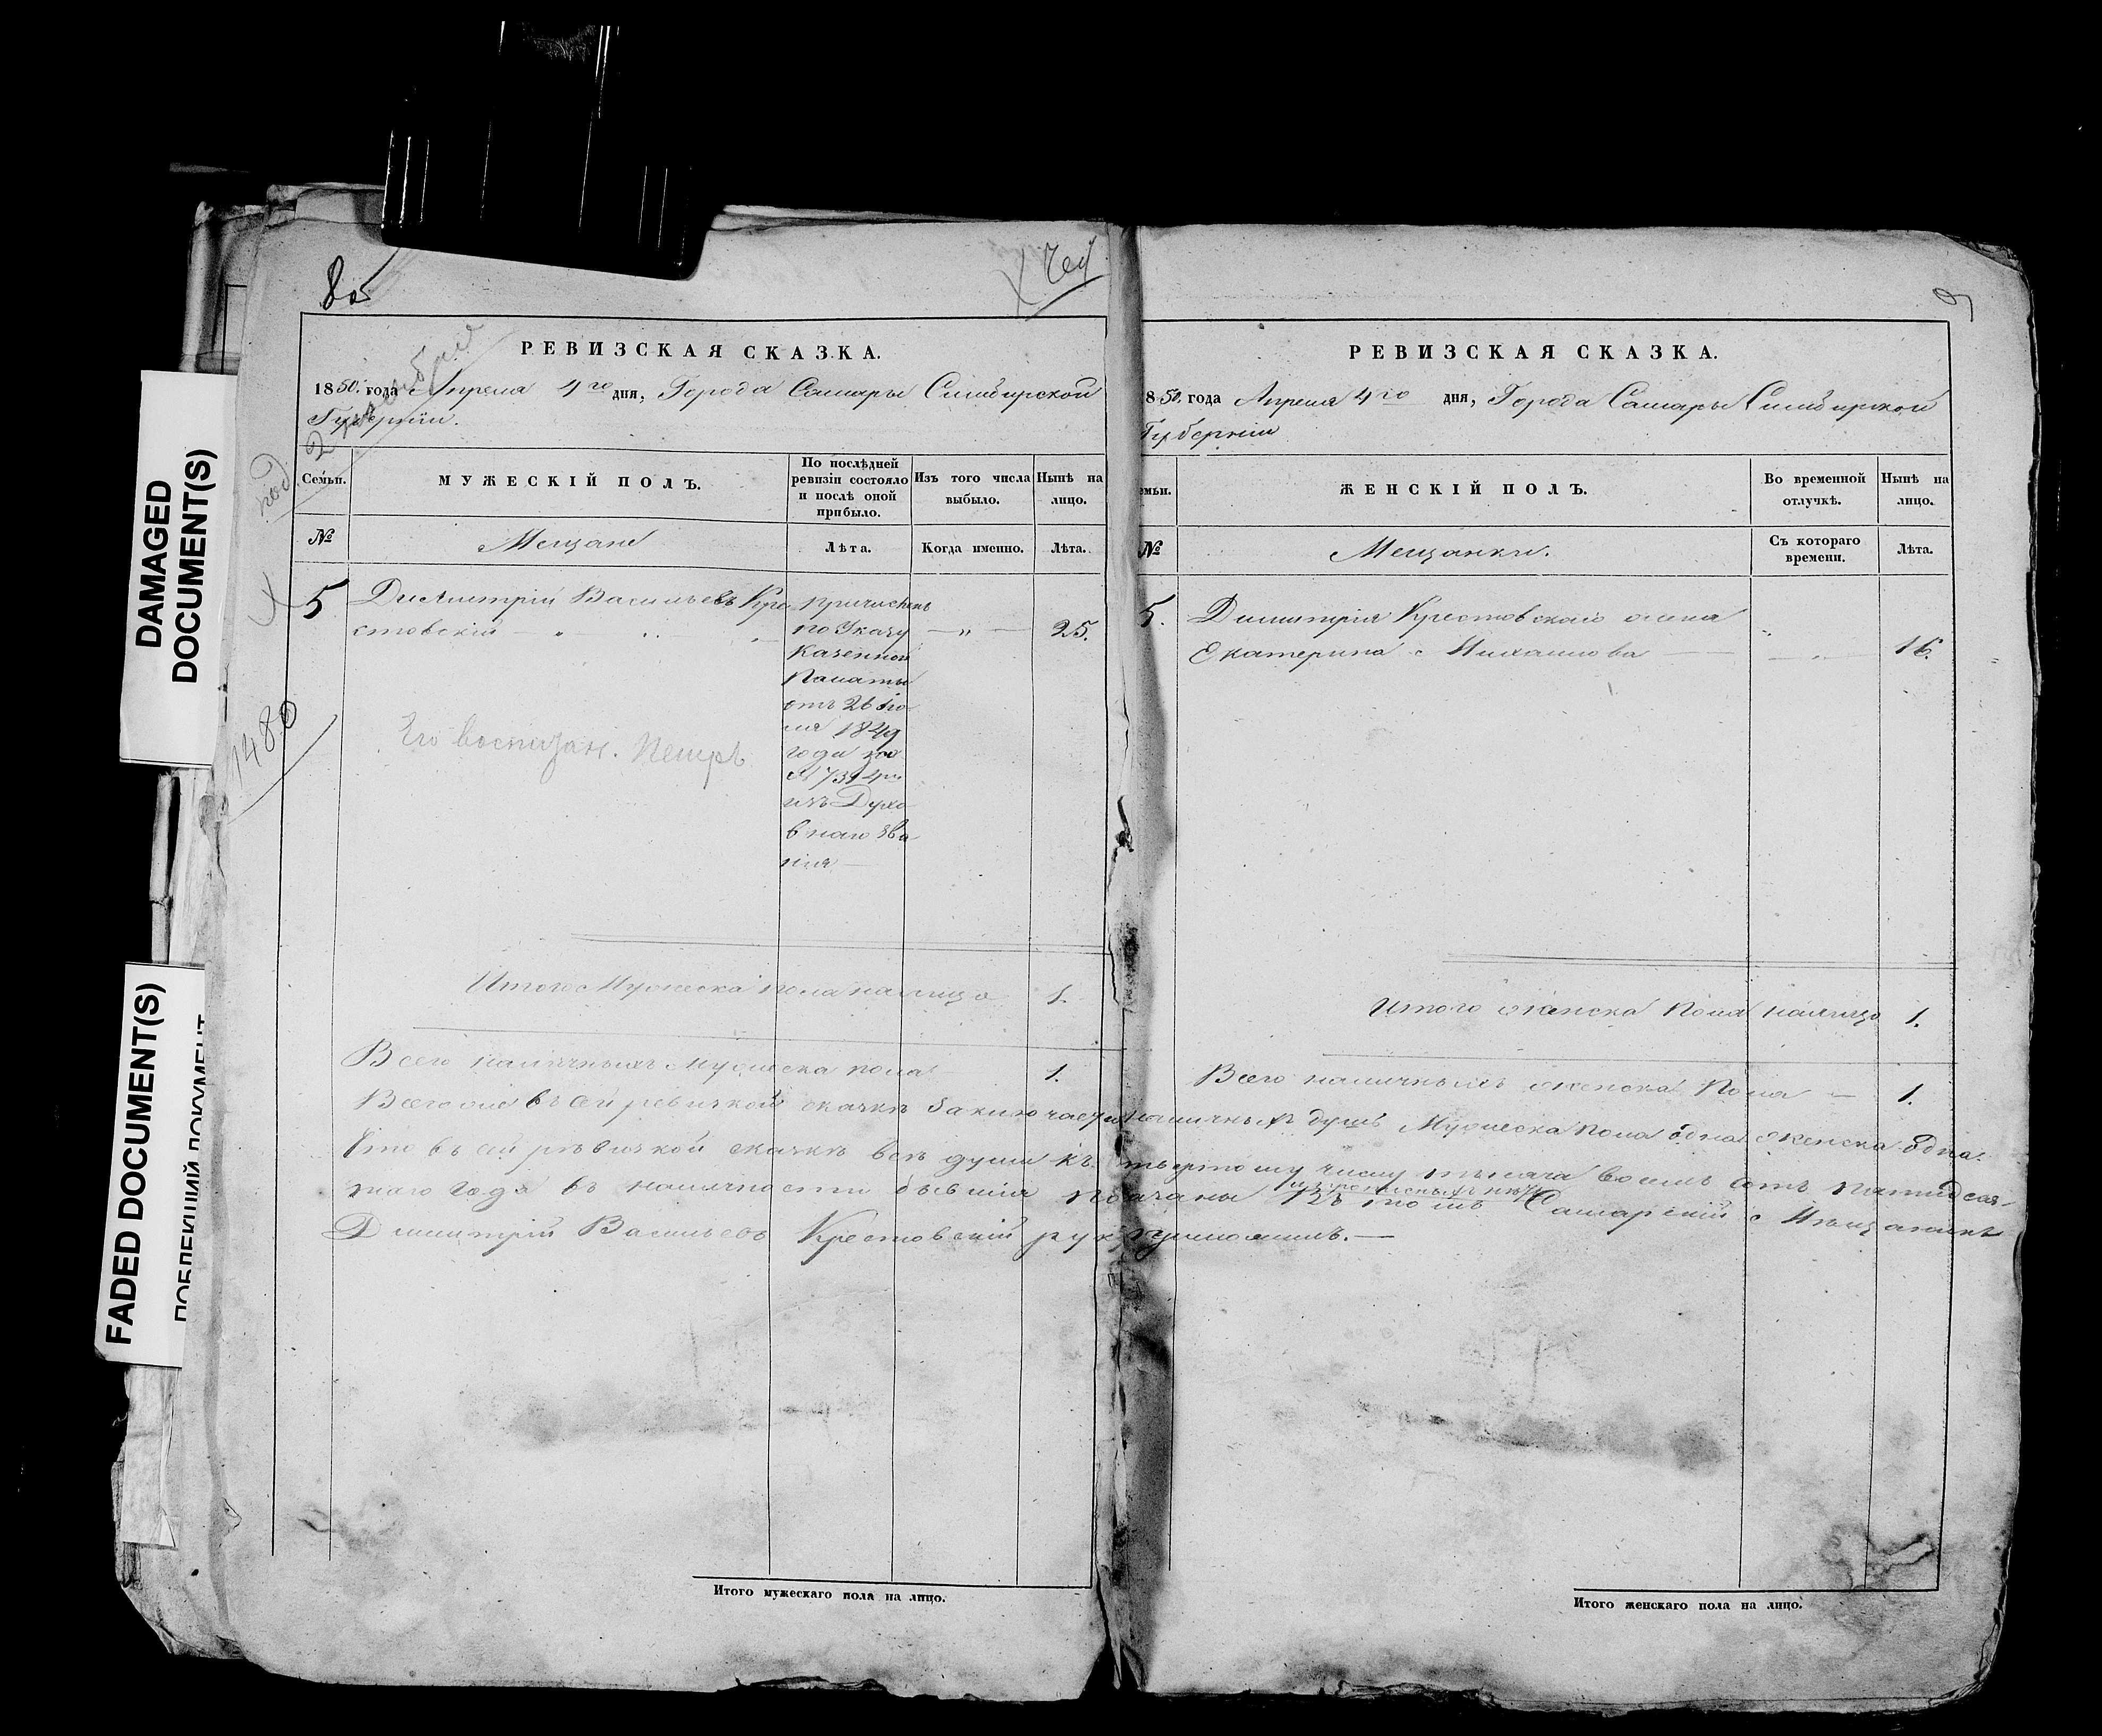 DAMAGED
DOCUMENT(S)
FADED DOCUMENT(S)
8об
1480
РЕВИЗСКАЯ СКАЗКА.
1850. года Апреля 4го дня, Города Самары Симбирской
Губерніи.
Семьи.
МУЖЕСКІЙ ПОЛЪ.
По послѣдней
ревизіи состояло
и послѣ оной
прибыло.
Изъ того числа
выбыло.
Нынѣ на
лицо.
№
Мещане
Лѣта.
Когда именно.
Лѣта.
5
Димитрій Васильевъ Кре
стовскій
причисленъ
по Указу
Казенной
Палаты
отъ 26 Iю
ля 1849
года за
№ 7394м
изъ Духо
внаго зва
нія
25.
Его воспитан. Петръ
Итого Мужеска пола на лицо 1.
Всего наличныхъ Мужеска пола 1.
Итого мужескаго пола на лицо.
9
РЕВИЗСКАЯ СКАЗКА.
850. года Апреля 4го дня, Города Самары Симбирской
Губерніи
емьи.
ЖЕНСКІЙ ПОЛЪ.
Во временной
отлучкѣ.
Нынѣ на
лицо.
№
Мещанки.
Съ котораго
времени.
Лѣта.
5.
Димитрія Крестовскаго жена
Екатерина Михаилова 16.
Итого женска пола налицо 1.
Всего наличныхъ женска Пола 1.
Всего въ сей ревизкой сказкѣ Заключается наличныхъ душъ Мужеска пола одна женска одна.
Что въ сей ревизкой сказкѣ всѣ души къ числу тысяча восемь сотъ пятидеся-
таго года въ наличности бывшія показаны Въ томъ Самарскій Мѣщанинъ
Димитрій Васильевъ Крестовскій руку приложилъ.
Итого женскаго пола на лицо.